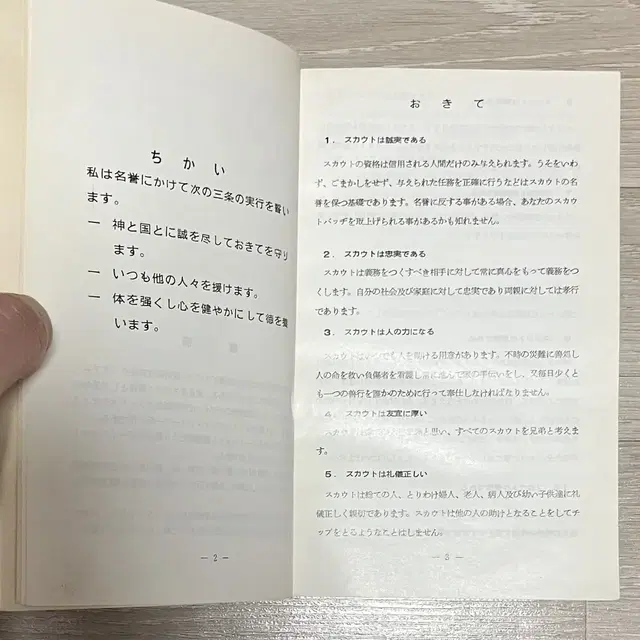 ちかい
私は名誉にかけて次の三条の実行を誓い
ます。
一 神と国とに誠を尽しておきてを守り
ます。
一 いつも他の人々を援けます。
一 体を強くし心を健やかにして徳を養
います。
— 2 —
おきて
1. スカウトは誠実である
スカウトの資格は信用される人間だけのみ与えられます。うそをいわ
ず、ごまかしをせず、与えられた任務を正確に行うなどはスカウトの名
誉を保つ基礎であります。名誉に反する事がある場合、あなたのスカウ
トバッヂを取上げられる事があるかも知れません。
2. スカウトは忠実である
スカウトは義務をつくすべき相手に対して常に真心をもって義務をつ
くします。自分の社会及び家庭に対して忠実であり両親に対しては孝行
であります。
3. スカウトは人の力になる
スカウトはいつでも人を助ける用意があります。不時の災難に善処し
人の命を救い負傷者を看護し常に進んで家の手伝いをし、又毎日少くと
も一つの善行を誰かのために行って奉仕しなければなりません。
4. スカウトは友宜に厚い
と思い、すべてのスカウトを兄弟と考えま
す。
5. スカウトは礼儀正しい
スカウトは総ての人、とりわけ婦人、老人、病人及び幼い子供達に礼
儀正しく親切であります。スカウトは他の人の助けとなることをしてチ
ップをとるようなことはしません。
— 3 —